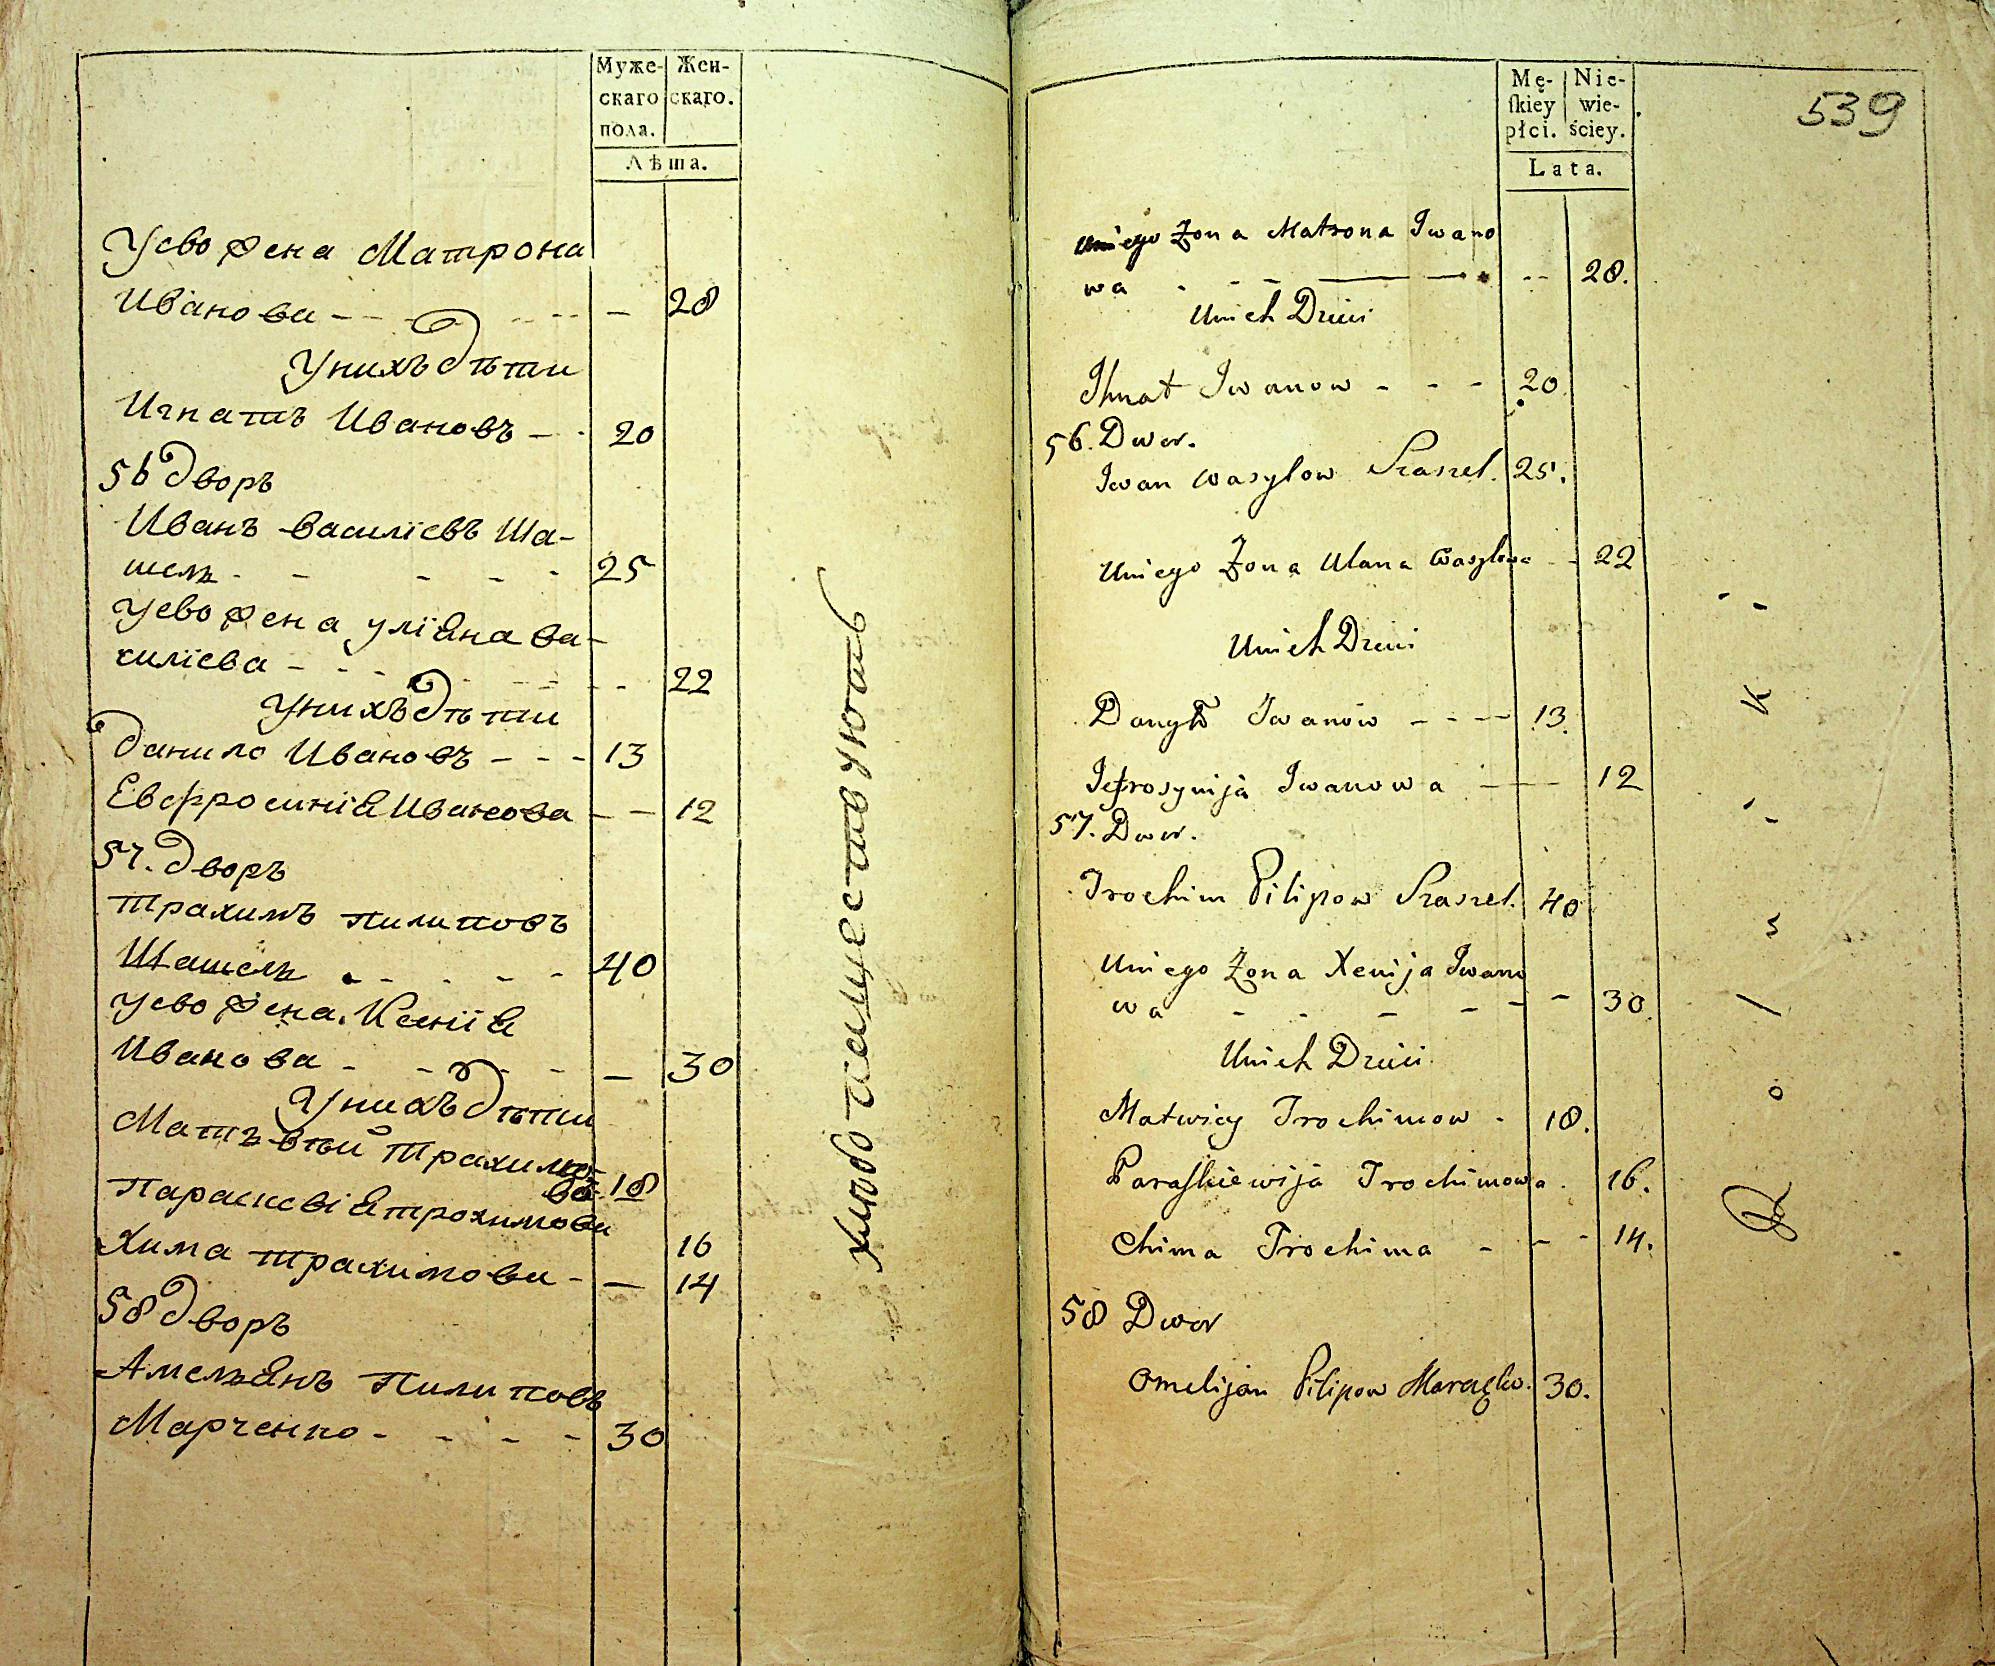 Муже- Жен-
скаго скаго.
пола.
Лѣта.
Усво жена Матрона
Иванова - - - - - — 28
Унихъ дѣти
Игнатъ Ивановъ — - 20
56 дворъ
Иванъ василіевъ Ша-
шель - - - - - 25
Усво жена уліѧна ва-
силіева - - - - - - 22
Унихъ дѣти
данило Ивановъ - - - 13
Евфросиніѧ Иванова - — 12
57. дворъ
трахимъ пилиповъ
Шашель - - - - 40
Усво жена Ксеніѧ
Иванова - - - - — 30
Унихъ дѣти
Матъвѣй трахимо-
въ 18
параскевіѧ трохимова
16
Хима трахимова - — 14
58 дворъ
Амельѧнъ пилиповъ
Марченко - - - - 30
хлѣбопашествуютъ
539
Mę- Nie-
ſkiey wie-
płci. ściey.
Lata.
Uniego Żona Matrona Iwano
wa - - - — — - - 28.
Unich Dzieci
Ihnat Iwanow - - - 20
56. Dwor.
Iwan Wasylow Szaszel. 25.
Uniego Żona Ulana Wasylowa - - 22
Unich Dzieci
Danyło Iwanow - - - - 13.
Jefrosynija Iwanowa - — 12
57. Dwor.
Trochim Pilipow Szaszel. 40
Uniego Żona Xenija Iwano
wa - - - - - - 30.
Unich Dzieci
Matwiey Trochimow - 18.
Paraſkiewija Trochimowa. 16.
Chima Trochima - - - 14.
58 Dwor
Omelijan Pilipow 30.